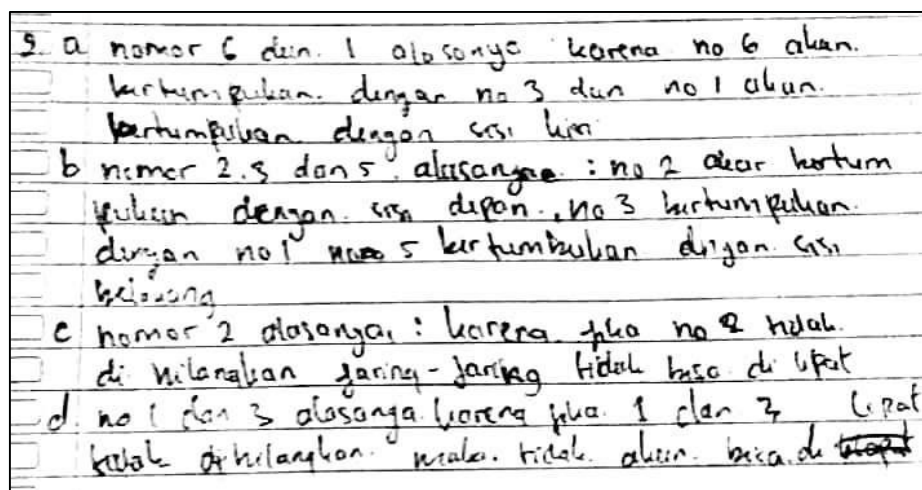 9. a nomor 6 dan. 1 alasonya karena no 6 akan.
bertumpukan. dengan no 3 dan no 1 akan.
bertumpukan dengan sisi kiri
b nomor 2.3 dan 5. alasangne : no 2 akar bertum
pukan dengan. sisi depan. no 3 bertumpukan.
dengan no 1 no 5 bertumbukan dengan. sisi
belakang
c nomor 2 alasanga, : karena jika no 2 tidak.
di hilangkan jaring-jaring tidak bisa di lipat
d. no 1 dan 3 alosanga. karena jika. 1 dan 3 lipat
tidak dihilangkan. maka. tidak. akan. bisa. di